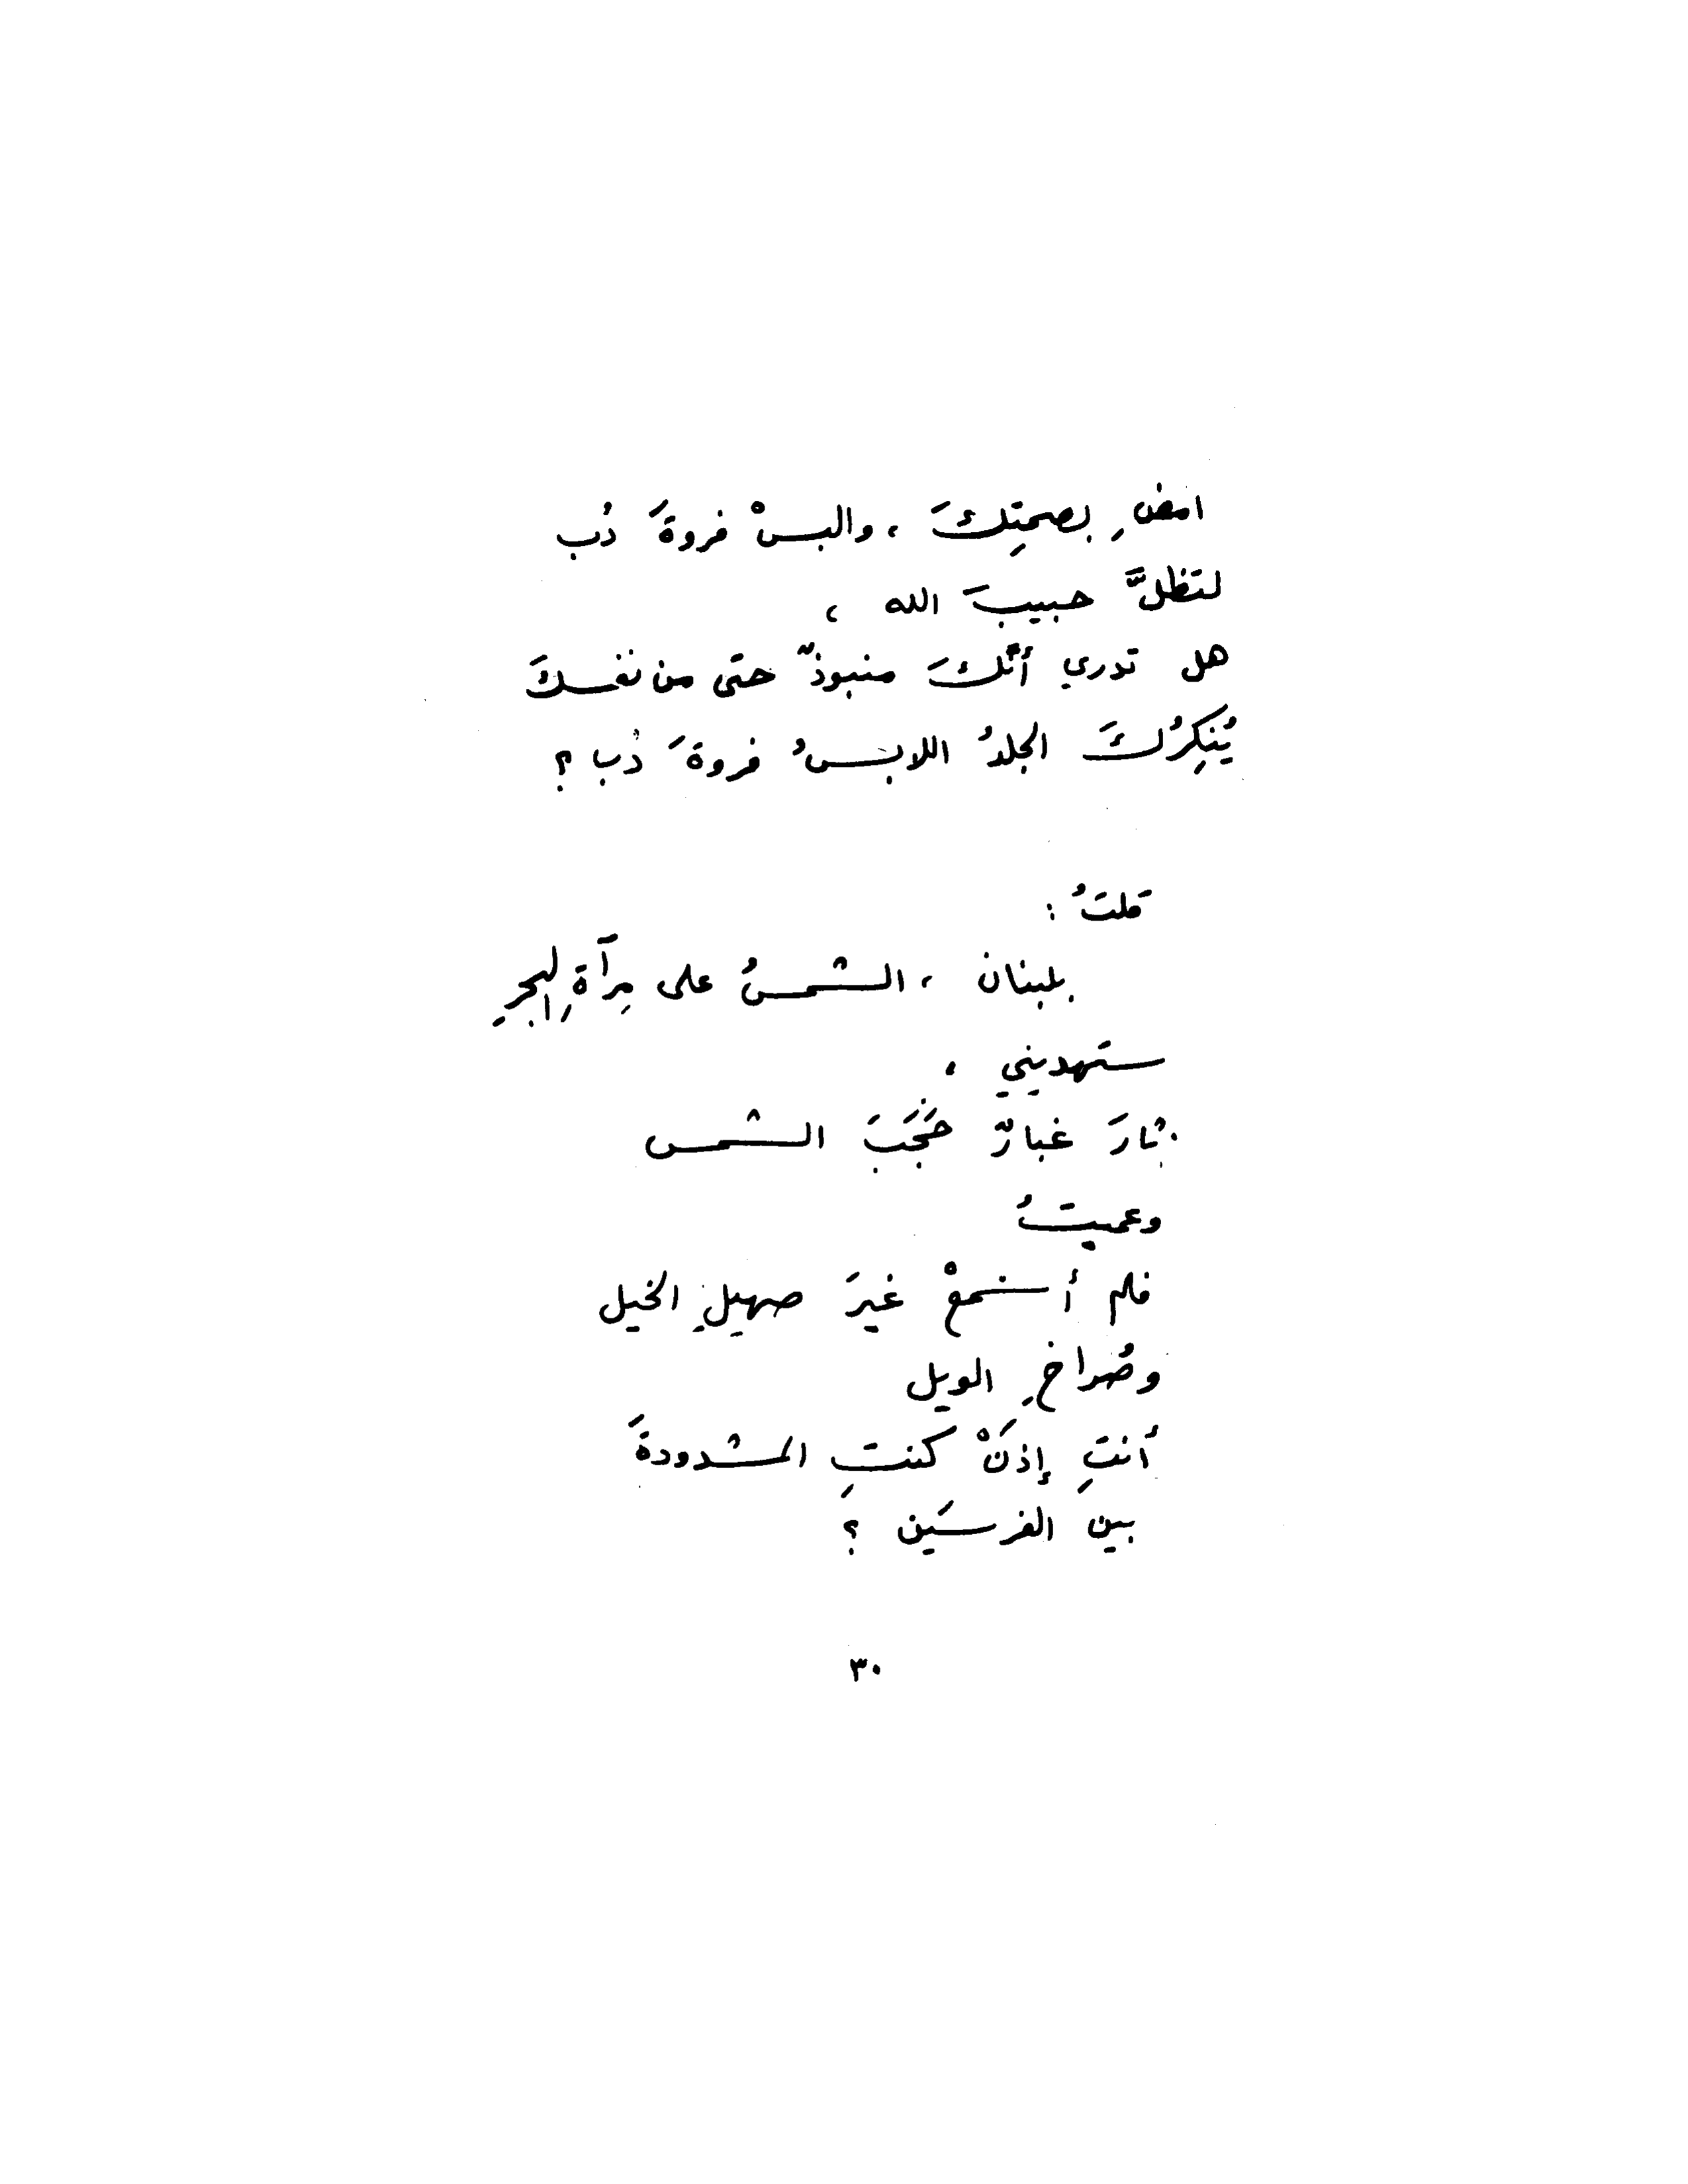 امضِ بصمتِكَ ، والبسْ فروةَ دُب
لتظلَّ حبيبَ الله ،
هل تدري أنّكَ منبوذٌ حتى من نفسكَ
يُنكِرُكَ الجلدُ اللابسُ فروةَ دُب ؟
قلتُ :
بلبنان ، الشمسُ على مِرآةِ البحرِ
ستهديني ،
ثارَ غبارٌ حَجَبَ الشمس
وعميتُ
فلم أسمعْ غيرَ صهيلِ الخيل
وصُراخِ الويل
أنتِ إذنْ كنتِ المشدودةَ
بينَ الفرسَين ؟
٣٠